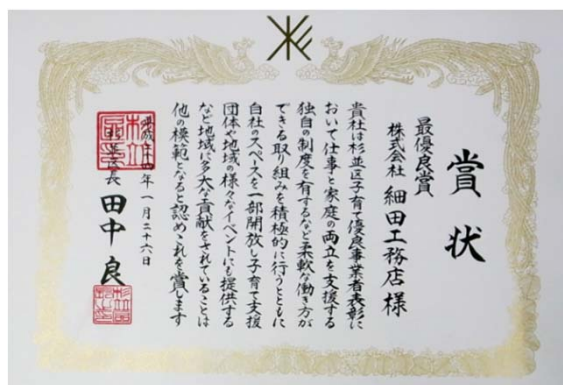 賞状
最優良賞
株式会社 細田工務店 様
貴社は杉並区子育て優良事業者表彰に
おいて仕事と家庭の両立を支援する
独自の制度を有するなど柔軟な働き方が
できる取り組みを積極的に行うとともに
自社のスペースを一部開放し子育て支援
団体や地域の様々なイベントにも提供する
など地域に多大な貢献をされていることは
他の模範となると認めこれを賞します
平成二十四年 一月二十六日
杉並区長 田中 良